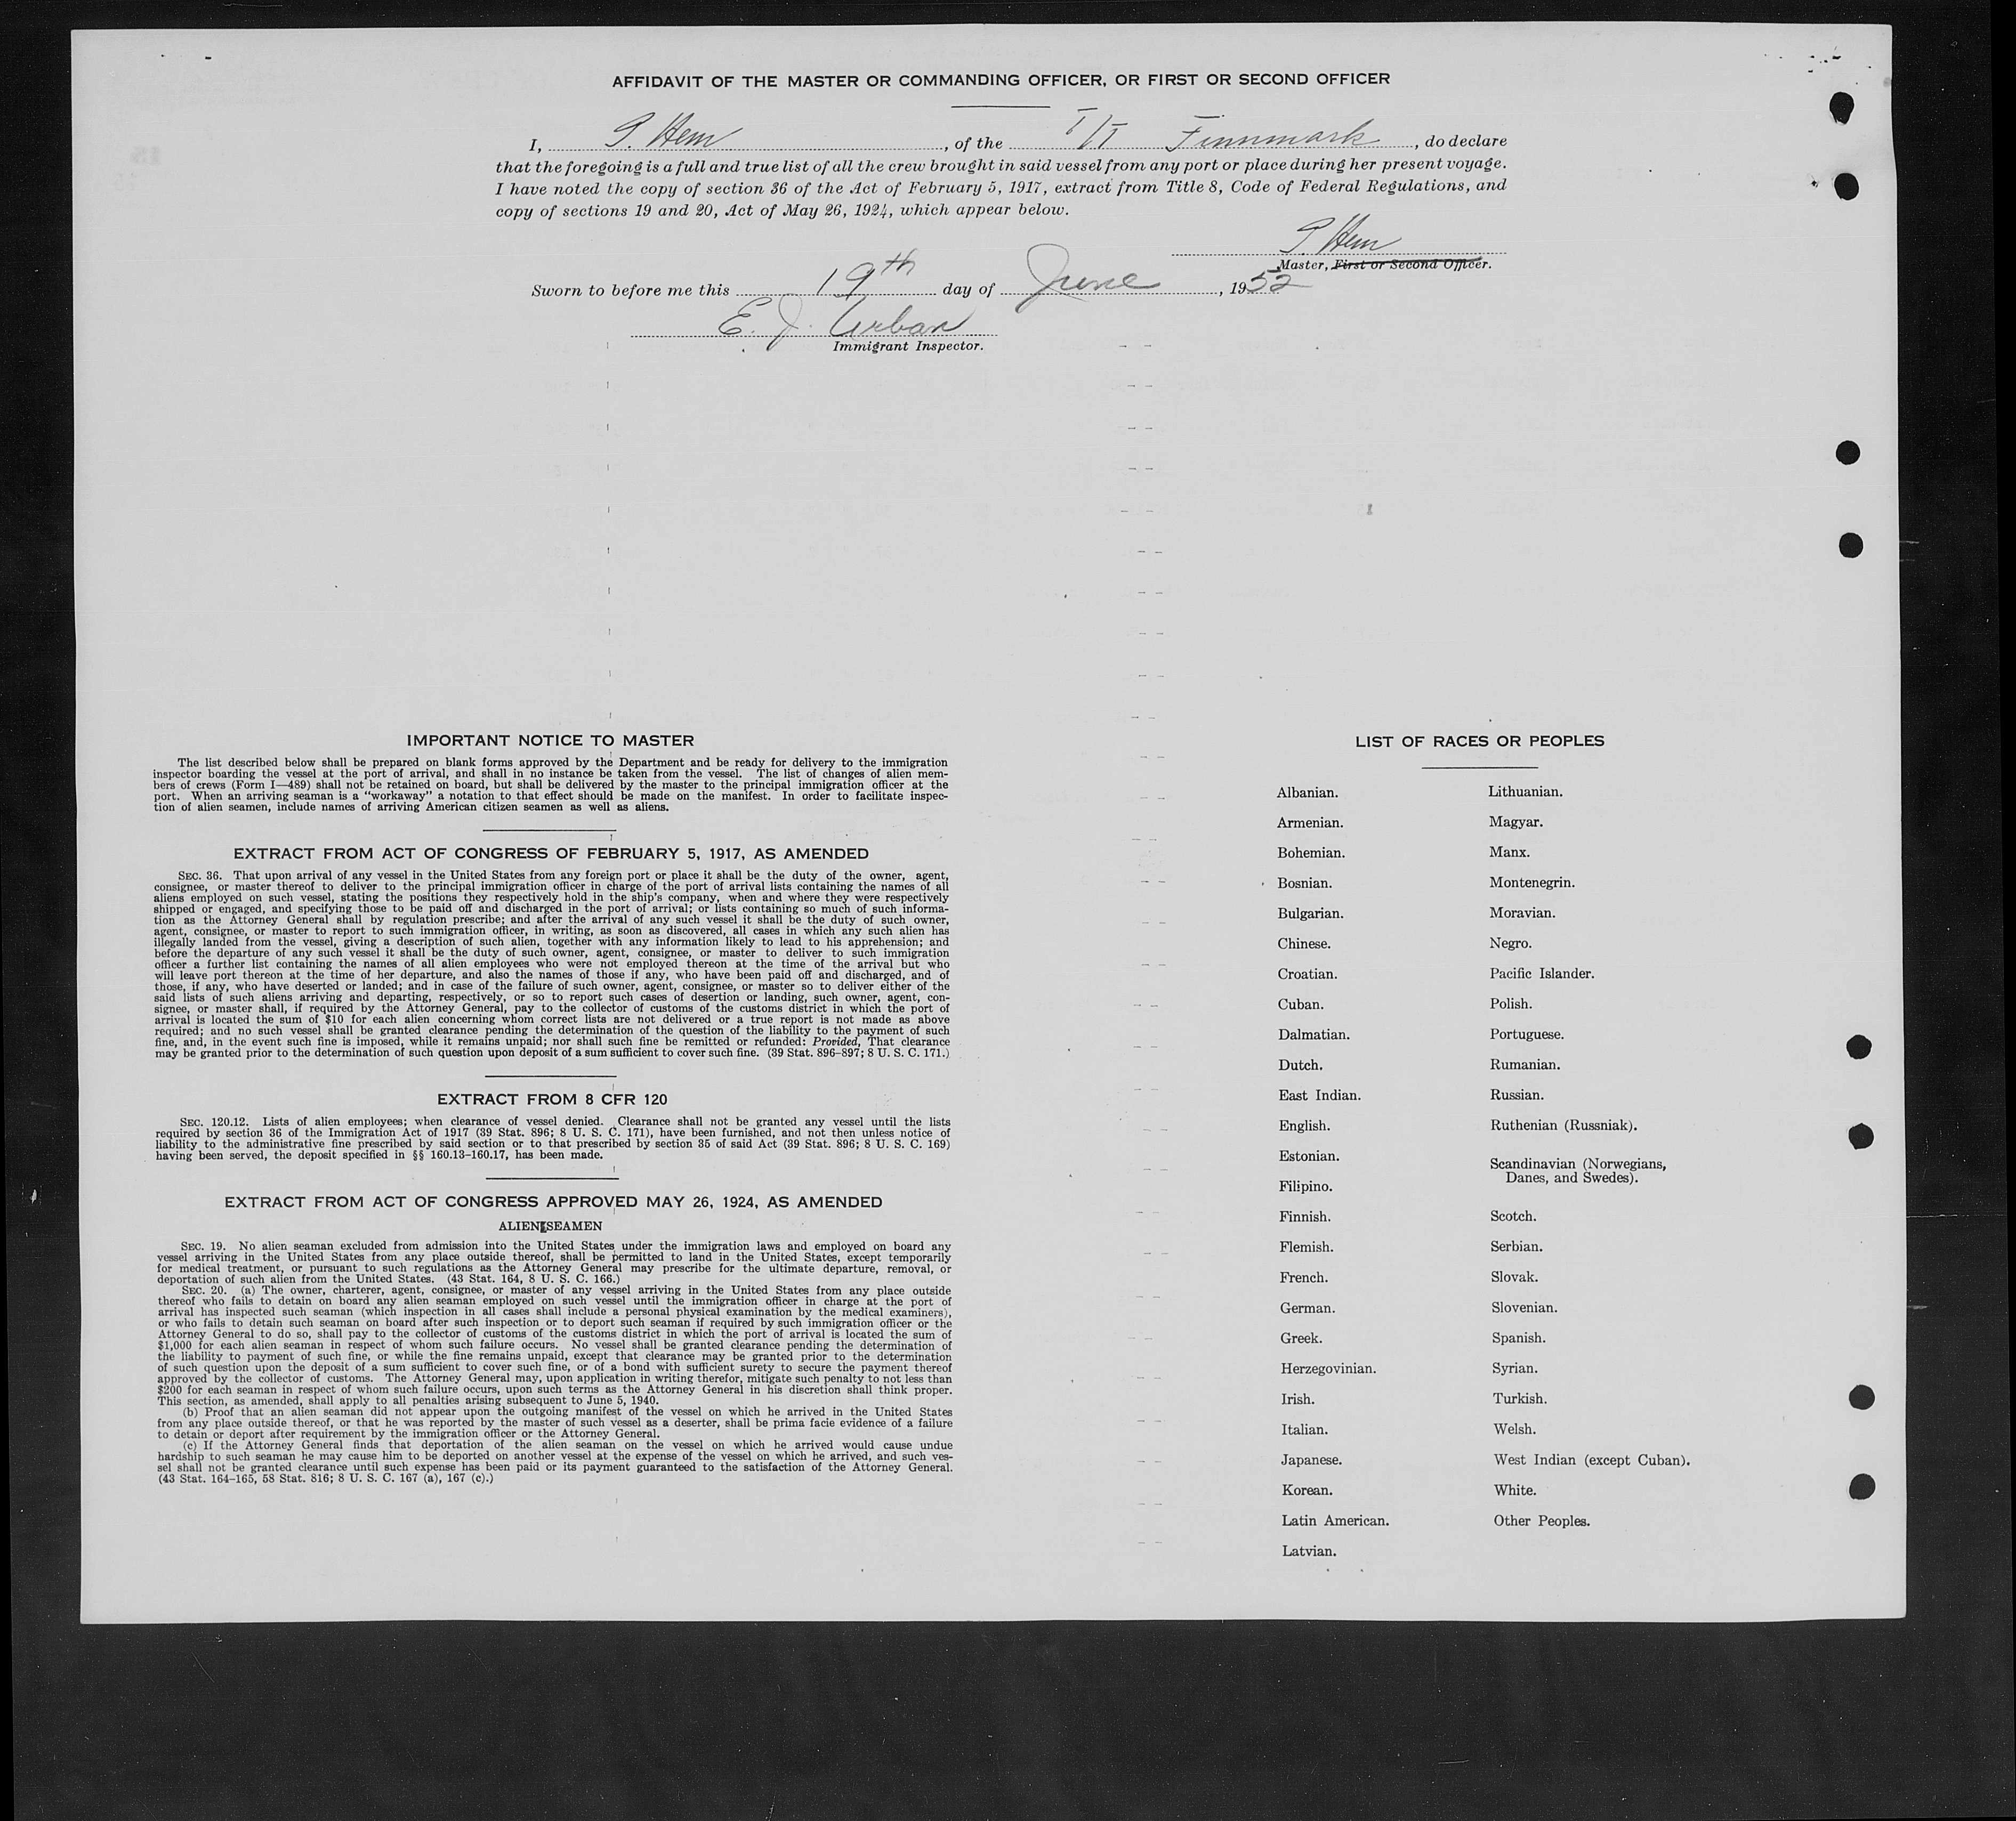 AFFIDAVIT OF THE MASTER OR COMMANDING OFFICER, OR FIRST OR SECOND OFFICER
I, P. Hem, of the T/T Finnmark, do declare
that the foregoing is a full and true list of all the crew brought in said vessel from any port or place during her present voyage.
I have noted the copy of section 36 of the Act of February 5, 1917, extract from Title 8, Code of Federal Regulations, and
copy of sections 19 and 20, Act of May 26, 1924, which appear below.
P. Hem
Master, First or Second Officer.
Sworn to before me this 19th day of June, 1952
E. J. Urban
Immigrant Inspector.
IMPORTANT NOTICE TO MASTER
The list described below shall be prepared on blank forms approved by the Department and be ready for delivery to the immigration
inspector boarding the vessel at the port of arrival, and shall in no instance be taken from the vessel. The list of changes of alien mem-
bers of crews (Form I—489) shall not be retained on board, but shall be delivered by the master to the principal immigration officer at the
port. When an arriving seaman is a “workaway” a notation to that effect should be made on the manifest. In order to facilitate inspec-
tion of alien seamen, include names of arriving American citizen seamen as well as aliens.
EXTRACT FROM ACT OF CONGRESS OF FEBRUARY 5, 1917, AS AMENDED
SEC. 36. That upon arrival of any vessel in the United States from any foreign port or place it shall be the duty of the owner, agent,
consignee, or master thereof to deliver to the principal immigration officer in charge of the port of arrival lists containing the names of all
aliens employed on such vessel, stating the positions they respectively hold in the ship's company, when and where they were respectively
shipped or engaged, and specifying those to be paid off and discharged in the port of arrival; or lists containing so much of such informa-
tion as the Attorney General shall by regulation prescribe; and after the arrival of any such vessel it shall be the duty of such owner,
agent, consignee, or master to report to such immigration officer, in writing, as soon as discovered, all cases in which any such alien has
illegally landed from the vessel, giving a description of such alien, together with any information likely to lead to his apprehension; and
before the departure of any such vessel it shall be the duty of such owner, agent, consignee, or master to deliver to such immigration
officer a further list containing the names of all alien employees who were not employed thereon at the time of the arrival but who
will leave port thereon at the time of her departure, and also the names of those if any, who have been paid off and discharged, and of
those, if any, who have deserted or landed; and in case of the failure of such owner, agent, consignee, or master so to deliver either of the
said lists of such aliens arriving and departing, respectively, or so to report such cases of desertion or landing, such owner, agent, con-
signee, or master shall, if required by the Attorney General, pay to the collector of customs of the customs district in which the port of
arrival is located the sum of $10 for each alien concerning whom correct lists are not delivered or a true report is not made as above
required; and no such vessel shall be granted clearance pending the determination of the question of the liability to the payment of such
fine, and, in the event such fine is imposed, while it remains unpaid; nor shall such fine be remitted or refunded: Provided, That clearance
may be granted prior to the determination of such question upon deposit of a sum sufficient to cover such fine. (39 Stat. 896–897; 8 U. S. C. 171.)
EXTRACT FROM 8 CFR 120
SEC. 120.12. Lists of alien employees; when clearance of vessel denied. Clearance shall not be granted any vessel until the lists
required by section 36 of the Immigration Act of 1917 (39 Stat. 896; 8 U. S. C. 171), have been furnished, and not then unless notice of
liability to the administrative fine prescribed by said section or to that prescribed by section 35 of said Act (39 Stat. 896; 8 U. S. C. 169)
having been served, the deposit specified in §§ 160.13–160.17, has been made.
EXTRACT FROM ACT OF CONGRESS APPROVED MAY 26, 1924, AS AMENDED
ALIEN SEAMEN
SEC. 19. No alien seaman excluded from admission into the United States under the immigration laws and employed on board any
vessel arriving in the United States from any place outside thereof, shall be permitted to land in the United States, except temporarily
for medical treatment, or pursuant to such regulations as the Attorney General may prescribe for the ultimate departure, removal, or
deportation of such alien from the United States. (43 Stat. 164, 8 U. S. C. 166.)
SEC. 20. (a) The owner, charterer, agent, consignee, or master of any vessel arriving in the United States from any place outside
thereof who fails to detain on board any alien seaman employed on such vessel until the immigration officer in charge at the port of
arrival has inspected such seaman (which inspection in all cases shall include a personal physical examination by the medical examiners),
or who fails to detain such seaman on board after such inspection or to deport such seaman if required by such immigration officer or the
Attorney General to do so, shall pay to the collector of customs of the customs district in which the port of arrival is located the sum of
$1,000 for each alien seaman in respect of whom such failure occurs. No vessel shall be granted clearance pending the determination of
the liability to payment of such fine, or while the fine remains unpaid, except that clearance may be granted prior to the determination
of such question upon the deposit of a sum sufficient to cover such fine, or of a bond with sufficient surety to secure the payment thereof
approved by the collector of customs. The Attorney General may, upon application in writing therefor, mitigate such penalty to not less than
$200 for each seaman in respect of whom such failure occurs, upon such terms as the Attorney General in his discretion shall think proper.
This section, as amended, shall apply to all penalties arising subsequent to June 5, 1940.
(b) Proof that an alien seaman did not appear upon the outgoing manifest of the vessel on which he arrived in the United States
from any place outside thereof, or that he was reported by the master of such vessel as a deserter, shall be prima facie evidence of a failure
to detain or deport after requirement by the immigration officer or the Attorney General.
(c) If the Attorney General finds that deportation of the alien seaman on the vessel on which he arrived would cause undue
hardship to such seaman he may cause him to be deported on another vessel at the expense of the vessel on which he arrived, and such ves-
sel shall not be granted clearance until such expense has been paid or its payment guaranteed to the satisfaction of the Attorney General.
(43 Stat. 164–165, 58 Stat. 816; 8 U. S. C. 167 (a), 167 (c).)
LIST OF RACES OR PEOPLES
Albanian.
Armenian.
Bohemian.
Bosnian.
Bulgarian.
Chinese.
Croatian.
Cuban.
Dalmatian.
Dutch.
East Indian.
English.
Estonian.
Filipino.
Finnish.
Flemish.
French.
German.
Greek.
Herzegovinian.
Irish.
Italian.
Japanese.
Korean.
Latin American.
Latvian.
Lithuanian.
Magyar.
Manx.
Montenegrin.
Moravian.
Negro.
Pacific Islander.
Polish.
Portuguese.
Rumanian.
Russian.
Ruthenian (Russniak).
Scandinavian (Norwegians,
Danes, and Swedes).
Scotch.
Serbian.
Slovak.
Slovenian.
Spanish.
Syrian.
Turkish.
Welsh.
West Indian (except Cuban).
White.
Other Peoples.